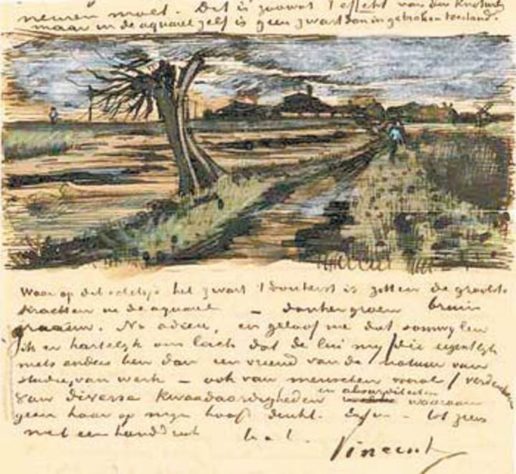 neuren moet. Dit is zoowat 't effect van den knotwilg
maar in de aquarel zelf is geen zwart dan in gebroken toestand.
Waar op dit schetsje het zwart 't donkerst is zitten de grootste
krachten in de aquarel – donkergroen bruin
graauw. Nu adieu, en geloof me dat somwijlen
ik er hartelijk om lach dat de lui mij die eigentlijk
niets anders ben dan een vriend van de natuur van
studie van werk – ook van menschen vooral verdenken
van diverse kwaadaardigheden en absurditeiten waaraan
geen haar op mijn hoofd denkt. Enfin – tot ziens
met een handdruk
Vincent